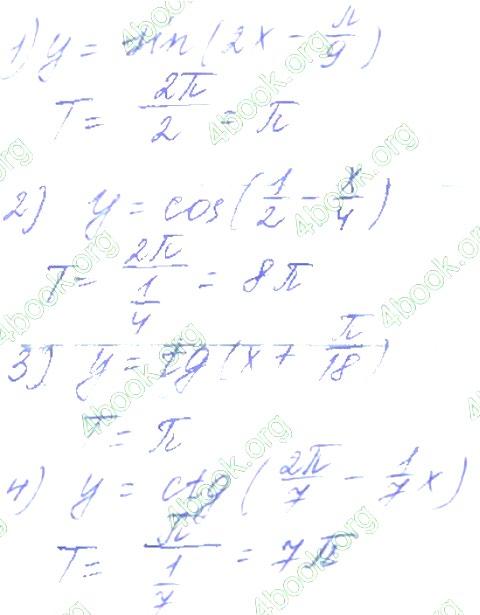 1) y = sin(2x - π/9)
T = 2π/2 = π
2) y = cos(1/2 - x/4)
T = 2π/(1/4) = 8π
3) y = tg(x + π/18)
T = π
4) y = ctg(2π/7 - 1/7 x)
T = π/(1/7) = 7π
4book.org
4book.org
4book.org
4book.org
4book.org
4book.org
4book.org
4book.org